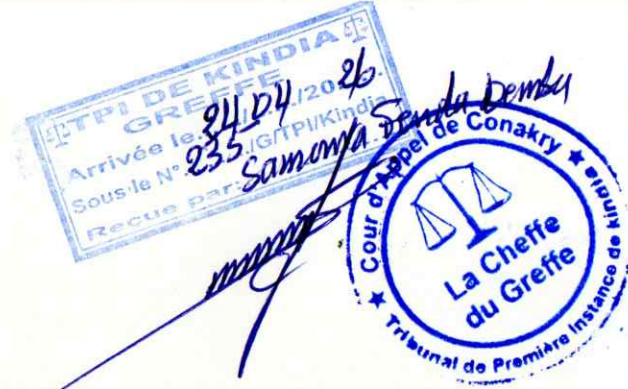 TPI DE KINDIA
GREFFE
Arrivée le 24/04/2026
Sous le N° 235/G/TPI/Kindia
Recue par: Samoura Demba
Cour d'Appel de Conakry
La Cheffe
du Greffe
Tribunal de Première Instance de kindia